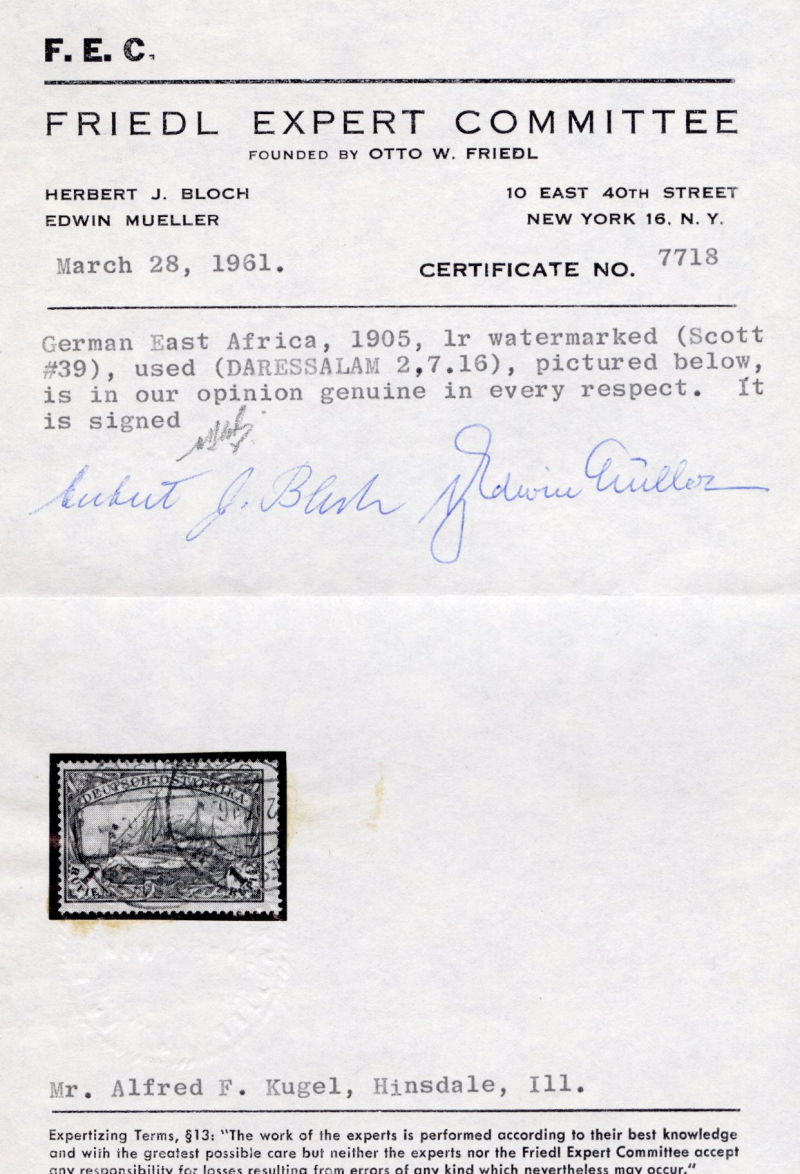 F. E. C.
FRIEDL EXPERT COMMITTEE
FOUNDED BY OTTO W. FRIEDL
HERBERT J. BLOCH
EDWIN MUELLER
10 EAST 40TH STREET
NEW YORK 16, N. Y.
March 28, 1961.
CERTIFICATE NO. 7718
German East Africa, 1905, 1r watermarked (Scott
#39), used (DARESSALAM 2,7.16), pictured below,
is in our opinion genuine in every respect. It
is signed
Herbert J. Bloch Edwin Müller
DEUTSCH-OSTAFRIKA
1 1
Mr. Alfred F. Kugel, Hinsdale, Ill.
Expertizing Terms, §13: "The work of the experts is performed according to their best knowledge
and with the greatest possible care but neither the experts nor the Friedl Expert Committee accept
any responsibility for losses resulting from errors of any kind which nevertheless may occur."